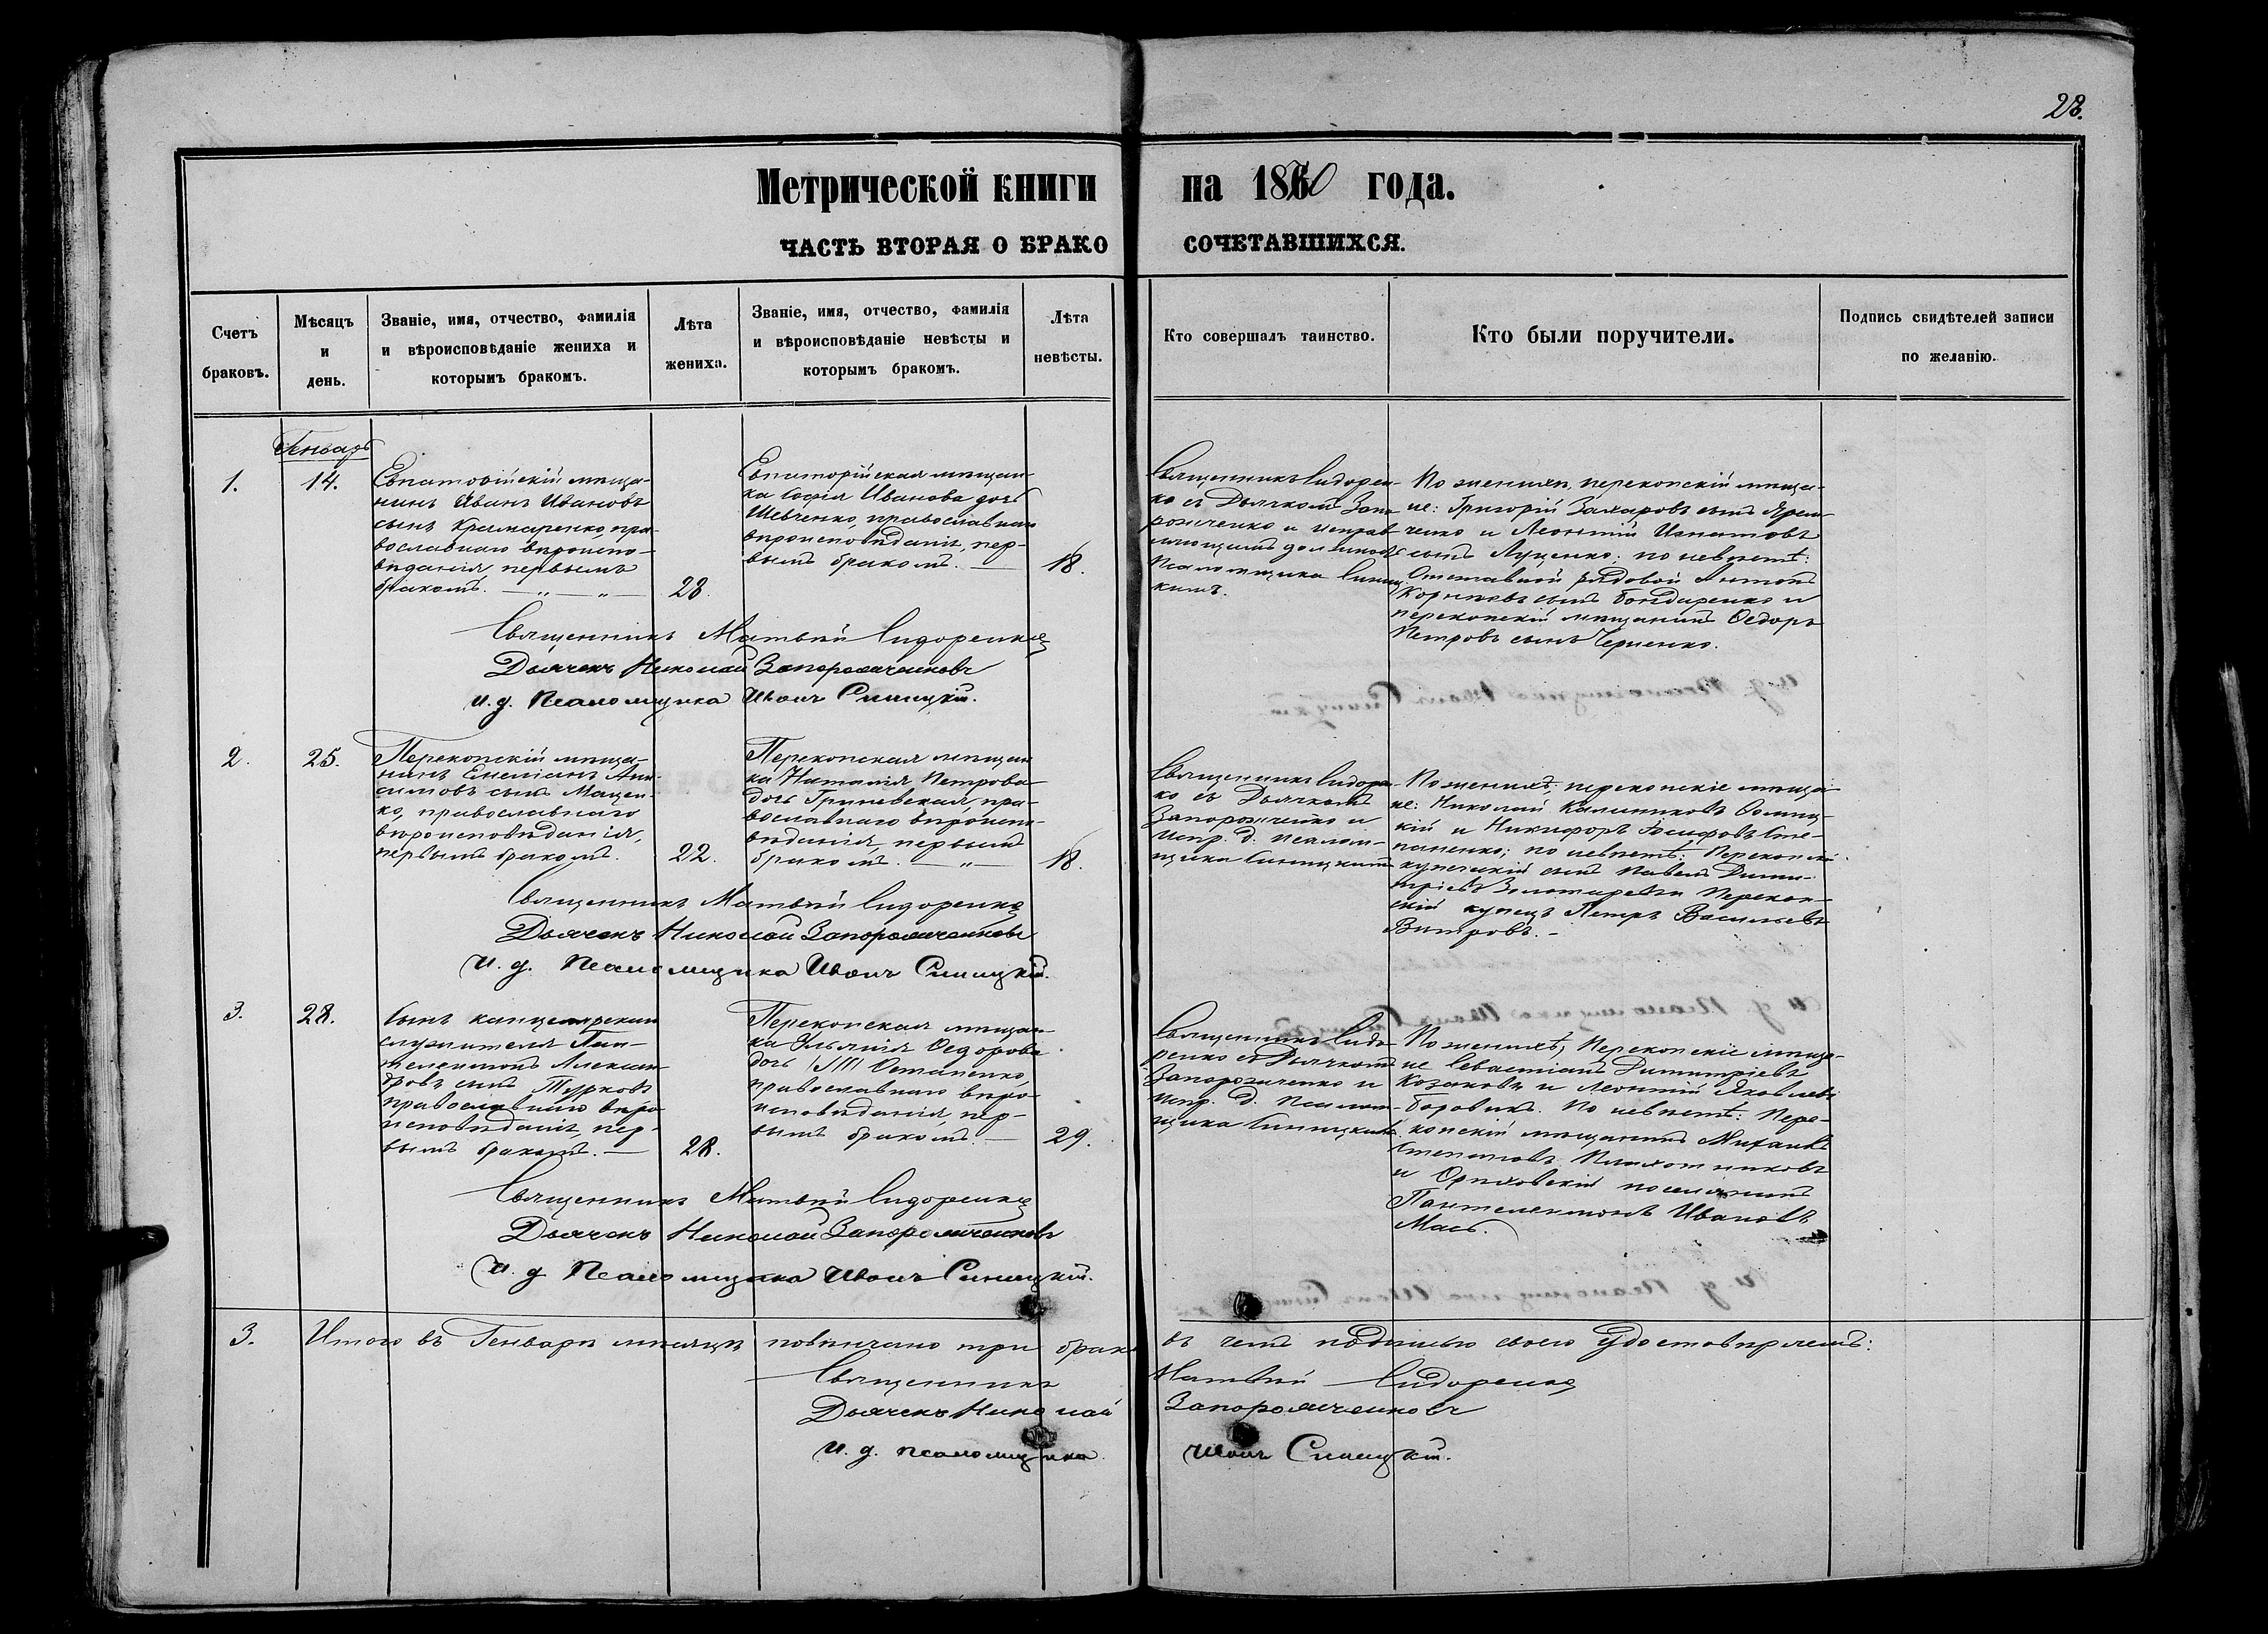 28.
Метрической книги на 1870 года.
ЧАСТЬ ВТОРАЯ О БРАКОСОЧЕТАВШИХСЯ.
Счетъ
браковъ.
Мѣсяцъ
и
день.
Званіе, имя, отчество, фамилія
и вѣроисповѣданіе жениха и
которымъ бракомъ.
Лѣта
жениха.
Званіе, имя, отчество, фамилія
и вѣроисповѣданіе невѣсты и
которымъ бракомъ.
Лѣта
невѣсты.
Кто совершалъ таинство.
Кто были поручители.
Подпись свидѣтелей записи
по желанію.
Генварь
1.
14.
Евпаторійскій мѣща-
нинъ Иванъ Ивановъ
сынъ Крамаренко, пра-
вославнаго вѣроиспо-
вѣданія первымъ
бракомъ. — „ — „ —
23.
Евпаторійская мѣщан-
ка Софія Иванова дочь
Шевченко, православнаго
вѣроисповѣданія, пер-
вымъ бракомъ. —
18.
Священникъ Сидорен-
ко съ Дьячкомъ Запо-
рожченко и исправ
ляющимъ должность
Псаломщика Синиц-
кимъ.
По женихѣ, перекопскій мѣща-
не: Григорій Захаровъ сынъ Ярем-
ченко и Леонтій Игнатовъ
сынъ Луценко: по невѣстѣ:
Отставной рядовой Антонъ
сынъ Бондаренко и
перекопскій мѣщанинъ Ѳедоръ
Петровъ сынъ Черненко.
Священникъ Матвѣй Сидоренко
Дьячекъ Николай Запорожченковъ
И. д. Псаломщика Иванъ Синицкій.
2.
25.
Перекопскій мѣща-
нинъ Емеліанъ Ани-
симовъ сынъ Мацен-
ко, православнаго
вѣроисповѣданія,
первымъ бракомъ.
22.
Перекопская мѣщан
ка Наталія Петрова
дочь Гриневская, пра-
вославнаго вѣроиспо-
вѣданія, первымъ
бракомъ. — „ —
18.
Священникъ Сидорен
ко съ Дьячкомъ
Запорожченко и
испр. д. псалом-
щика Синицкимъ
По женихѣ; перекопскіе мѣща-
не: Николай Калинниковъ
кій и Никифоръ Іосифовъ Сте-
паненко; по невѣстѣ: Перекопскій
купеческій сынъ Павелъ Дими-
тріевъ Золотаревъ и Перекоп-
скій купецъ Петръ Васильевъ
Витровъ. -
Священникъ Матвѣй Сидоренко
Дьячекъ Николай Запорожченковъ
И. д. Псаломщика Иванъ Синицкій.
3.
28.
Сынъ канцелярскаго
служителя Пан-
телеимонъ Алексан-
дровъ сынъ Турковъ
православнаго вѣро
исповѣданія, пер-
вымъ бракомъ. —
28.
Перекопская мѣщан-
ка Ульянія Ѳедорова
дочь Остапенко,
православнаго вѣро-
исповѣданія, пер-
вымъ бракомъ. —
29.
Священникъ Сидо
ренко съ Дьячкомъ
Запорожченко и
испр. д. Псалом-
щика Синицкимъ
По женихѣ, Перекопскіе мѣща-
не Севастіанъ Димитріевъ
Козаковъ и Леонтій Яковлевъ
Боровикъ. По невѣстѣ: Пере-
копскій мѣщанинъ Михаилъ
Степановъ Плахотниковъ
и Орѣховскій поселянинъ
Пантелеимонъ Ивановъ
Мась.
Священникъ Матвѣй Сидоренко
Дьячекъ Николай Запорожченковъ
И. д. Псаломщика Иванъ Синицкій.
3. Итого въ Генварѣ мѣсяцѣ повѣнчано три брака въ чемъ подписью своею удостовѣряемъ:
Священникъ Матвѣй Сидоренко
Дьячекъ Николай Запорожченковъ
И. д. псаломщика Иванъ Синицкій.